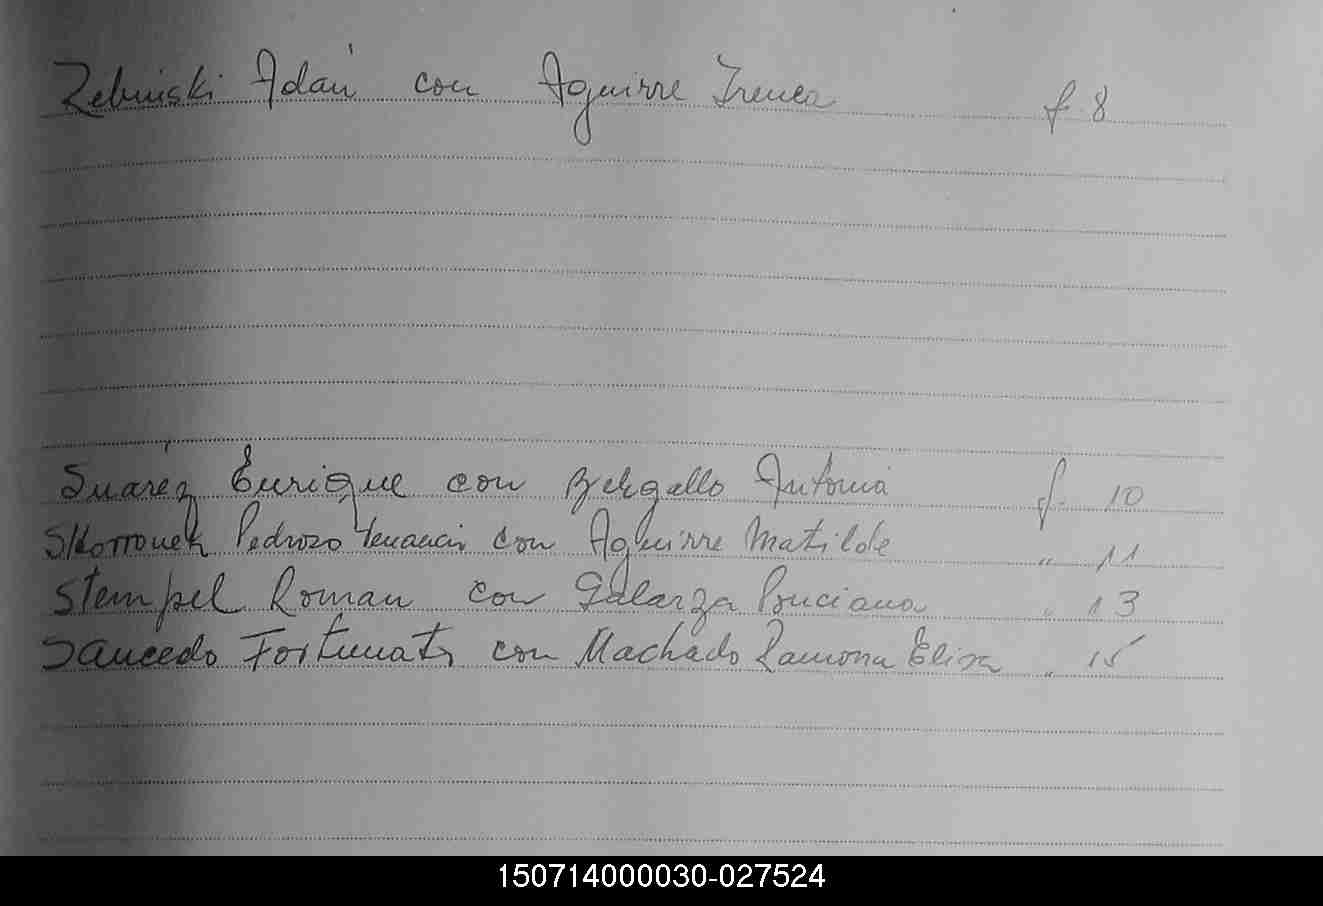 Rebuiski Adán con Aguirre Irenea f. 8
Suárez Enrique con Bergallo Antonia f. 10
Skorronek Pedrozo Venancio con Aguirre Matilde " 11
Stempel Roman con Galarza Ponciana " 13
Saucedo Fortunato con Machado Ramona Elisa " 15
150714000030-027524